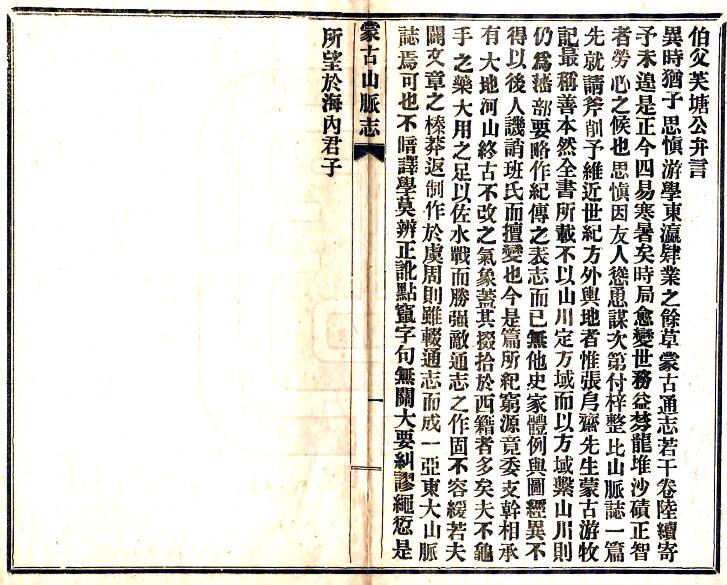 伯父芙塘公弁言
異時猶子思慎游學東瀛肄業之餘草蒙古通志若干卷陸續寄
予未遑是正今四易寒暑矣時局愈變世務益棼龍堆沙磧正智
者勞心之候也思慎因友人慫恿謀次第付梓整比山脈誌一篇
先就請斧削予維近世紀方外輿地者惟張𠩄齋先生蒙古游牧
記最稱善本然全書所載不以山川定方域而以方域繫山川則
仍爲藩部要略作紀傳之表志而已無他史家體例與圖經異不
得以後人譏誚班氏而擅變也今是篇所紀窮源竟委支幹相承
有大地河山終古不改之氣象蓋其掇拾於西籍者多矣夫不龜
手之藥大用之足以佐水戰而勝強敵通志之作固不容緩若夫
闢文章之榛莽返制作於虞周則雖輟通志而成一亞東大山脈
誌焉可也不暗譯學莫辨正訛點竄字句無關大要糾謬繩愆是
蒙古山脈志
一
所望於海內君子